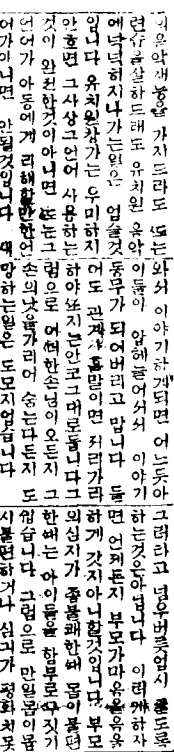 음악재능을 가지드라도 또는
련습을잘하드래도 유치원 음악
에넉넉히지나가는일은 업슬것
입니다 유치원창가는 우미하지
안흐면 그사상그언어 사용하는
것이 완전한것이아니면 또는그
언어가 아동에게 리해할만한언
어가아니면 안될것입니다 대
와서 이야기하게되면 어느듯아
이들이 압헤늘어서서 이야기
동무가 되어버리고 맙니다 들
어도 관계 말이면 가라
하야 지는안코그대로둡니다그
럼으로 어떠한손님이오든지 그
손의낫을가리어 숨는다든지 도
망하는일은 도모지업습니다
그러라고 넘우버릇업시 도록
하는것은아닙니다 이러케하자
면 언제든지 부모가마음을
하게 갓지아니할것입니다 부모
의심지가 불쾌한때 몸이불편
한때는 아이들을 함부로꾸짓기
쉽습니다 그럼으로 만일몸이몹
시불편하거나 심긔가 평화처못